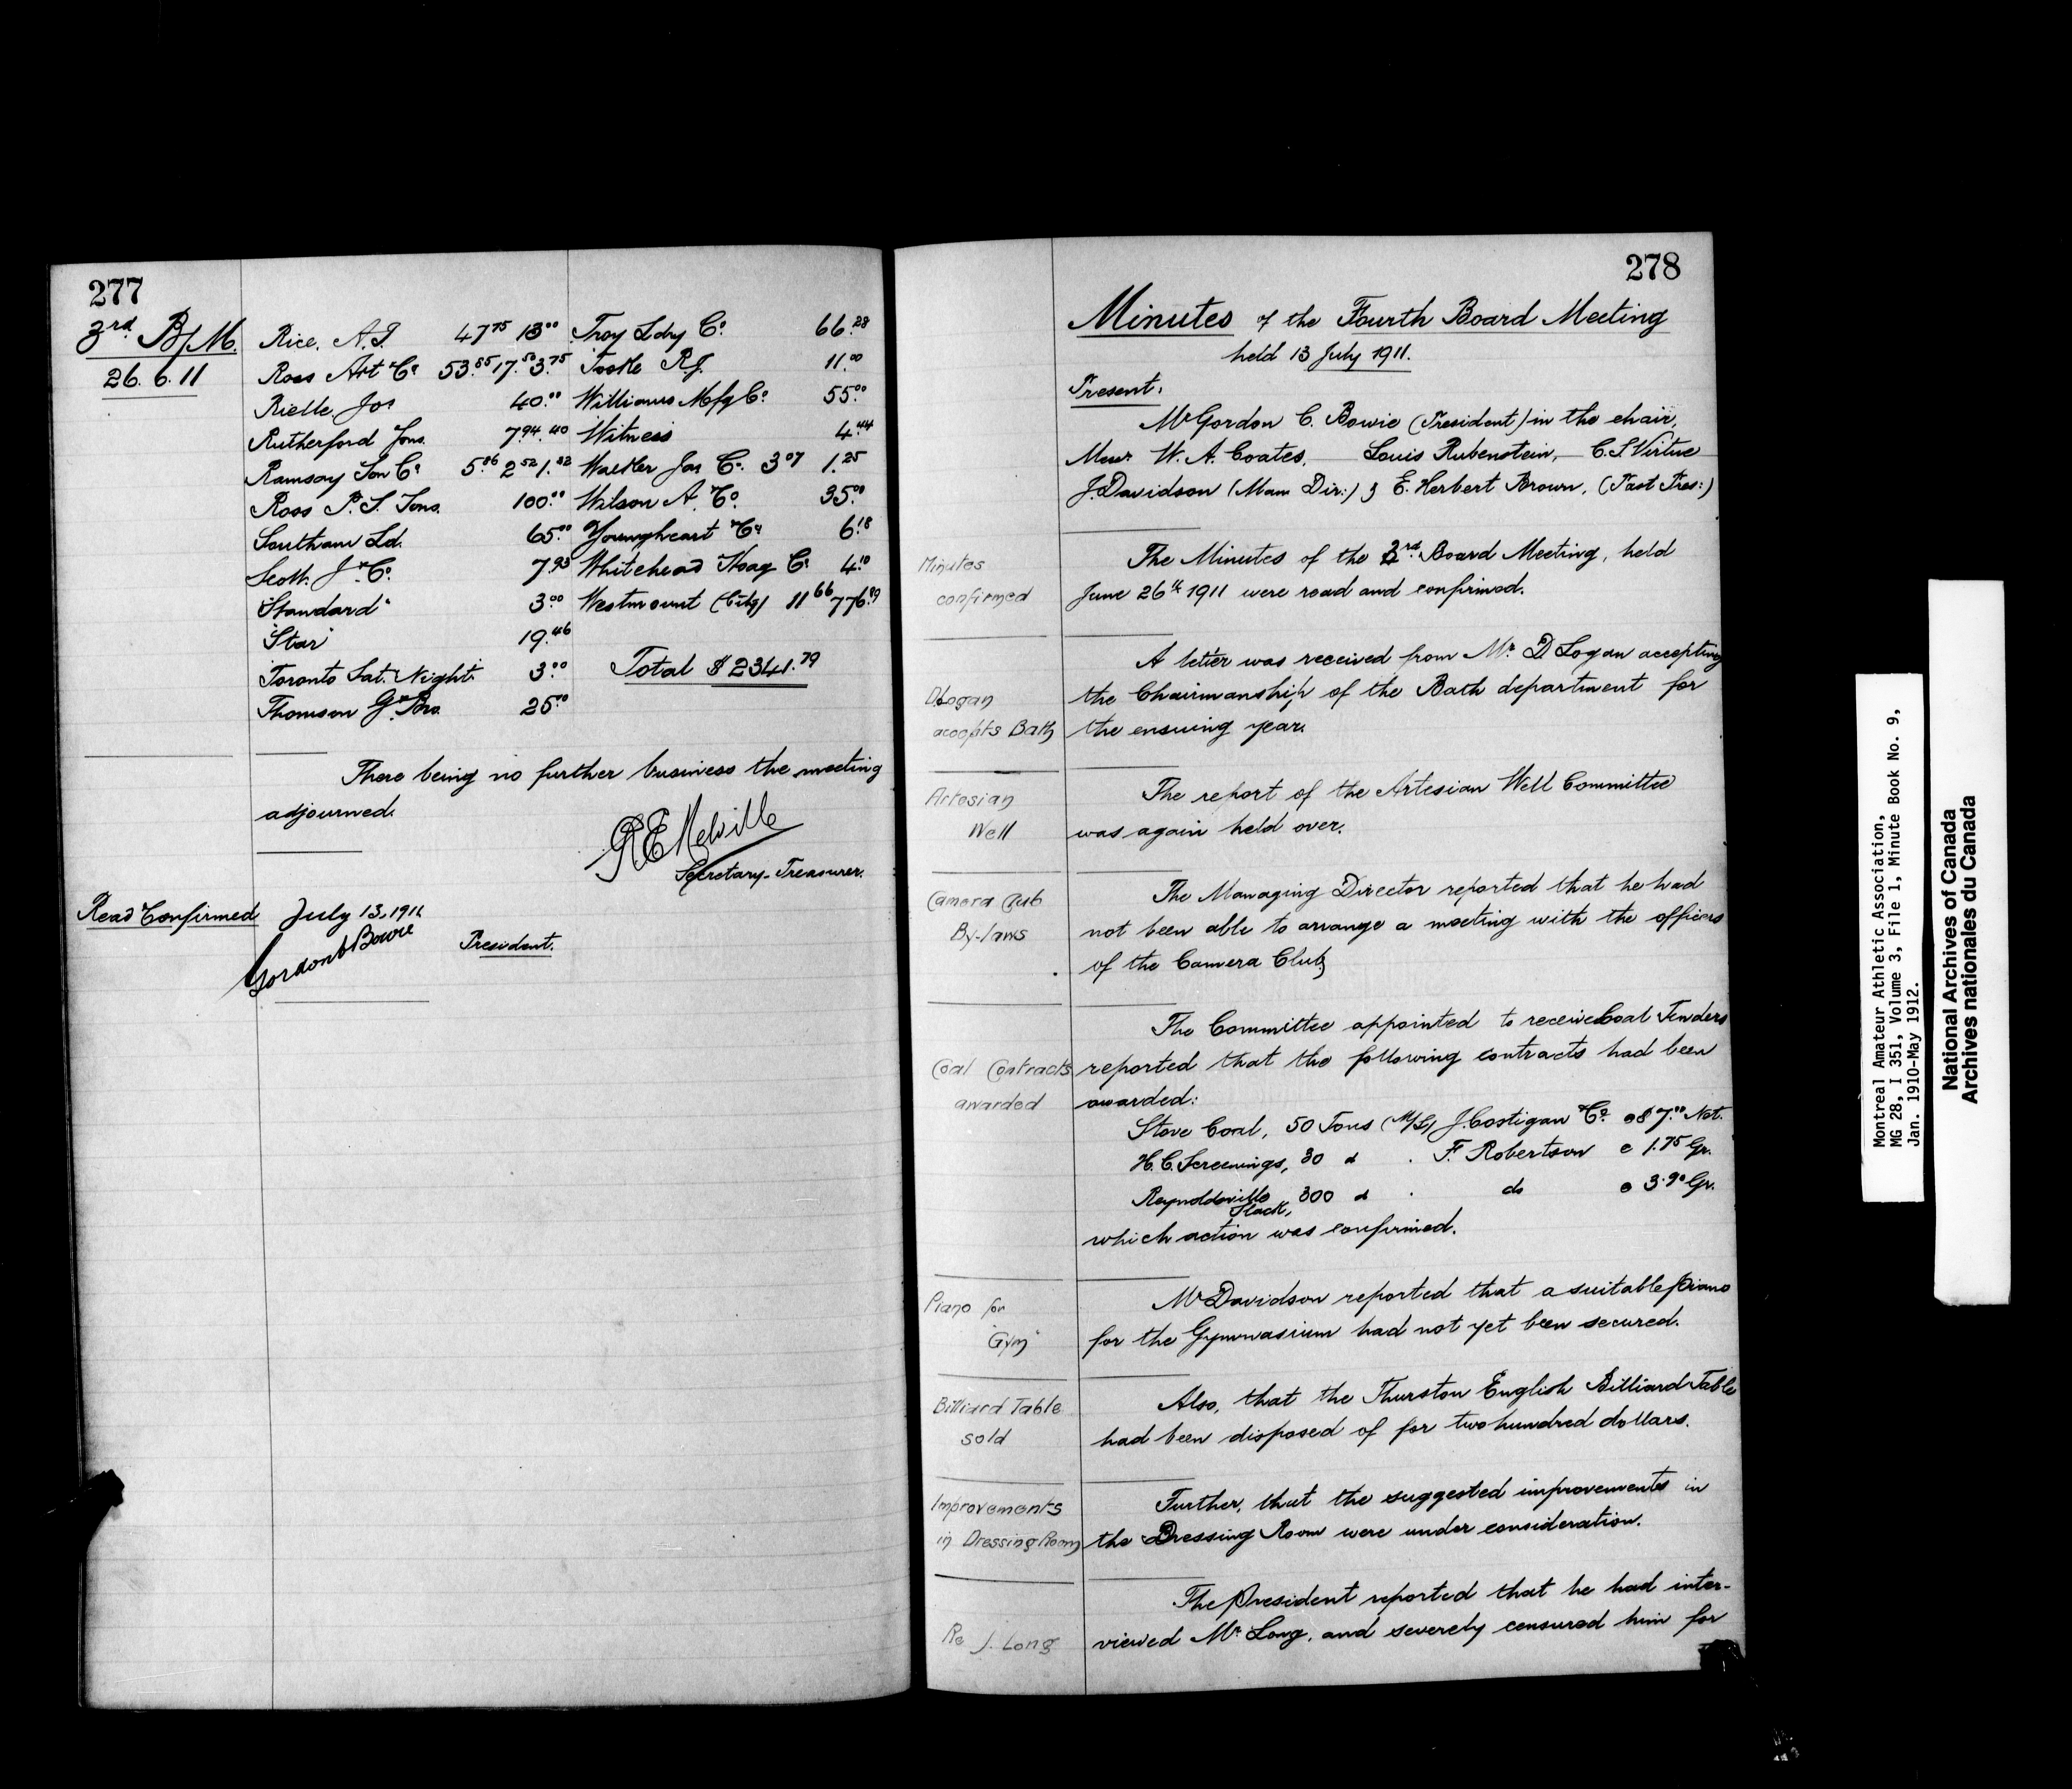 277
3rd B/M.
26.6.11
Rice, A.T. 47.75 13.00 Troy Ldry Co. 66.28
Ross Art & Co 53.85 17.50 3.75 Tooke R.J. 11.00
Rielle, Jos 40.00 Williams Mfg Co. 55.00
Rutherford Sons. 7.94 .40 Witness 4.44
Ramsay Son Co 5.86 2.52 1.82 Walker Jas Co. 3.07 1.25
Ross P.S. Sons. 100.00 Wilson A. & Co. 35.00
Southam Ld. 65.00 Youngheart & Co 6.18
Scott. J & Co. 7.93 Whitehead Hoag Co. 4.10
"Standard" 3.00 Westmount (City) 11.66 776.89
"Star" 19.46
Toronto Sat. Night. 3.00 Total $2341.79
Thomson G & Bro. 25.00
There being no further business the meeting
adjourned.
R E Melville
Secretary-Treasurer.
Read & Confirmed July 13, 1911
Gordon C Bowie President.
278
Minutes of the Fourth Board Meeting
held 13 July 1911.
Present:
Mr Gordon C. Bowie (President) in the chair,
Messrs W. A. Coates, Louis Rubenstein, C. S Virtue
J. Davidson (Man Dir:) & E. Herbert Brown, (Past Pres:)
Minutes
confirmed
The Minutes of the 3rd Board Meeting, held
June 26th 1911 were read and confirmed.
D Logan
accepts Bath
A letter was received from Mr. D Logan accepting
the Chairmanship of the Bath department for
the ensuing year.
Artesian
Well
The report of the Artesian Well Committee
was again held over.
Camera Club
By-laws
The Managing Director reported that he had
not been able to arrange a meeting with the officers
of the Camera Club
Coal Contracts
awarded
The Committee appointed to receive Coal Tenders
reported that the following contracts had been
awarded:
Stove Coal, 50 Tons (M/L) J. Costigan & Co. @ $7.00 Net.
H.C. Screenings, 30 " " F. Robertson @ 1.75 Gr.
Reynoldsville Slack, 300 " " do @ 3.90 Gr.
which action was confirmed.
Piano for
"Gym"
Mr Davidson reported that a suitable piano
for the Gymnasium had not yet been secured.
Billiard Table
sold
Also, that the Thurston English Billiard Table
had been disposed of for two hundred dollars.
Improvements
in Dressing Room
Further, that the suggested improvements in
the Dressing Room were under consideration.
Re J. Long
The President reported that he had inter-
viewed Mr. Long, and severely censured him for
Montreal Amateur Athletic Association,
MG 28, I 351, Volume 3, File 1, Minute Book No. 9,
Jan. 1910-May 1912.
National Archives of Canada
Archives nationales du Canada